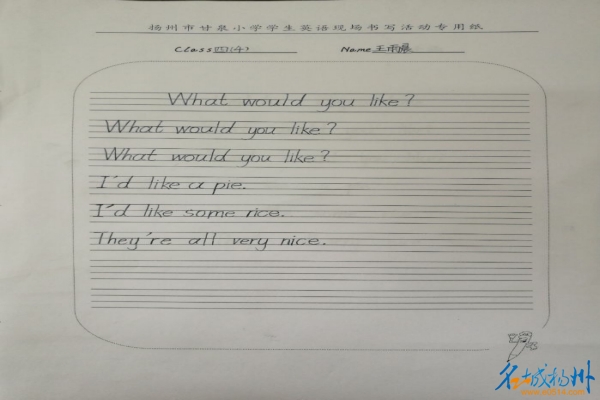 扬州市甘泉小学学生英语现场书写活动专用纸
Class 四(4) Name 王雨
What would you like?
What would you like?
What would you like?
I'd like a pie.
I'd like some rice.
They're all very nice.
名城扬州